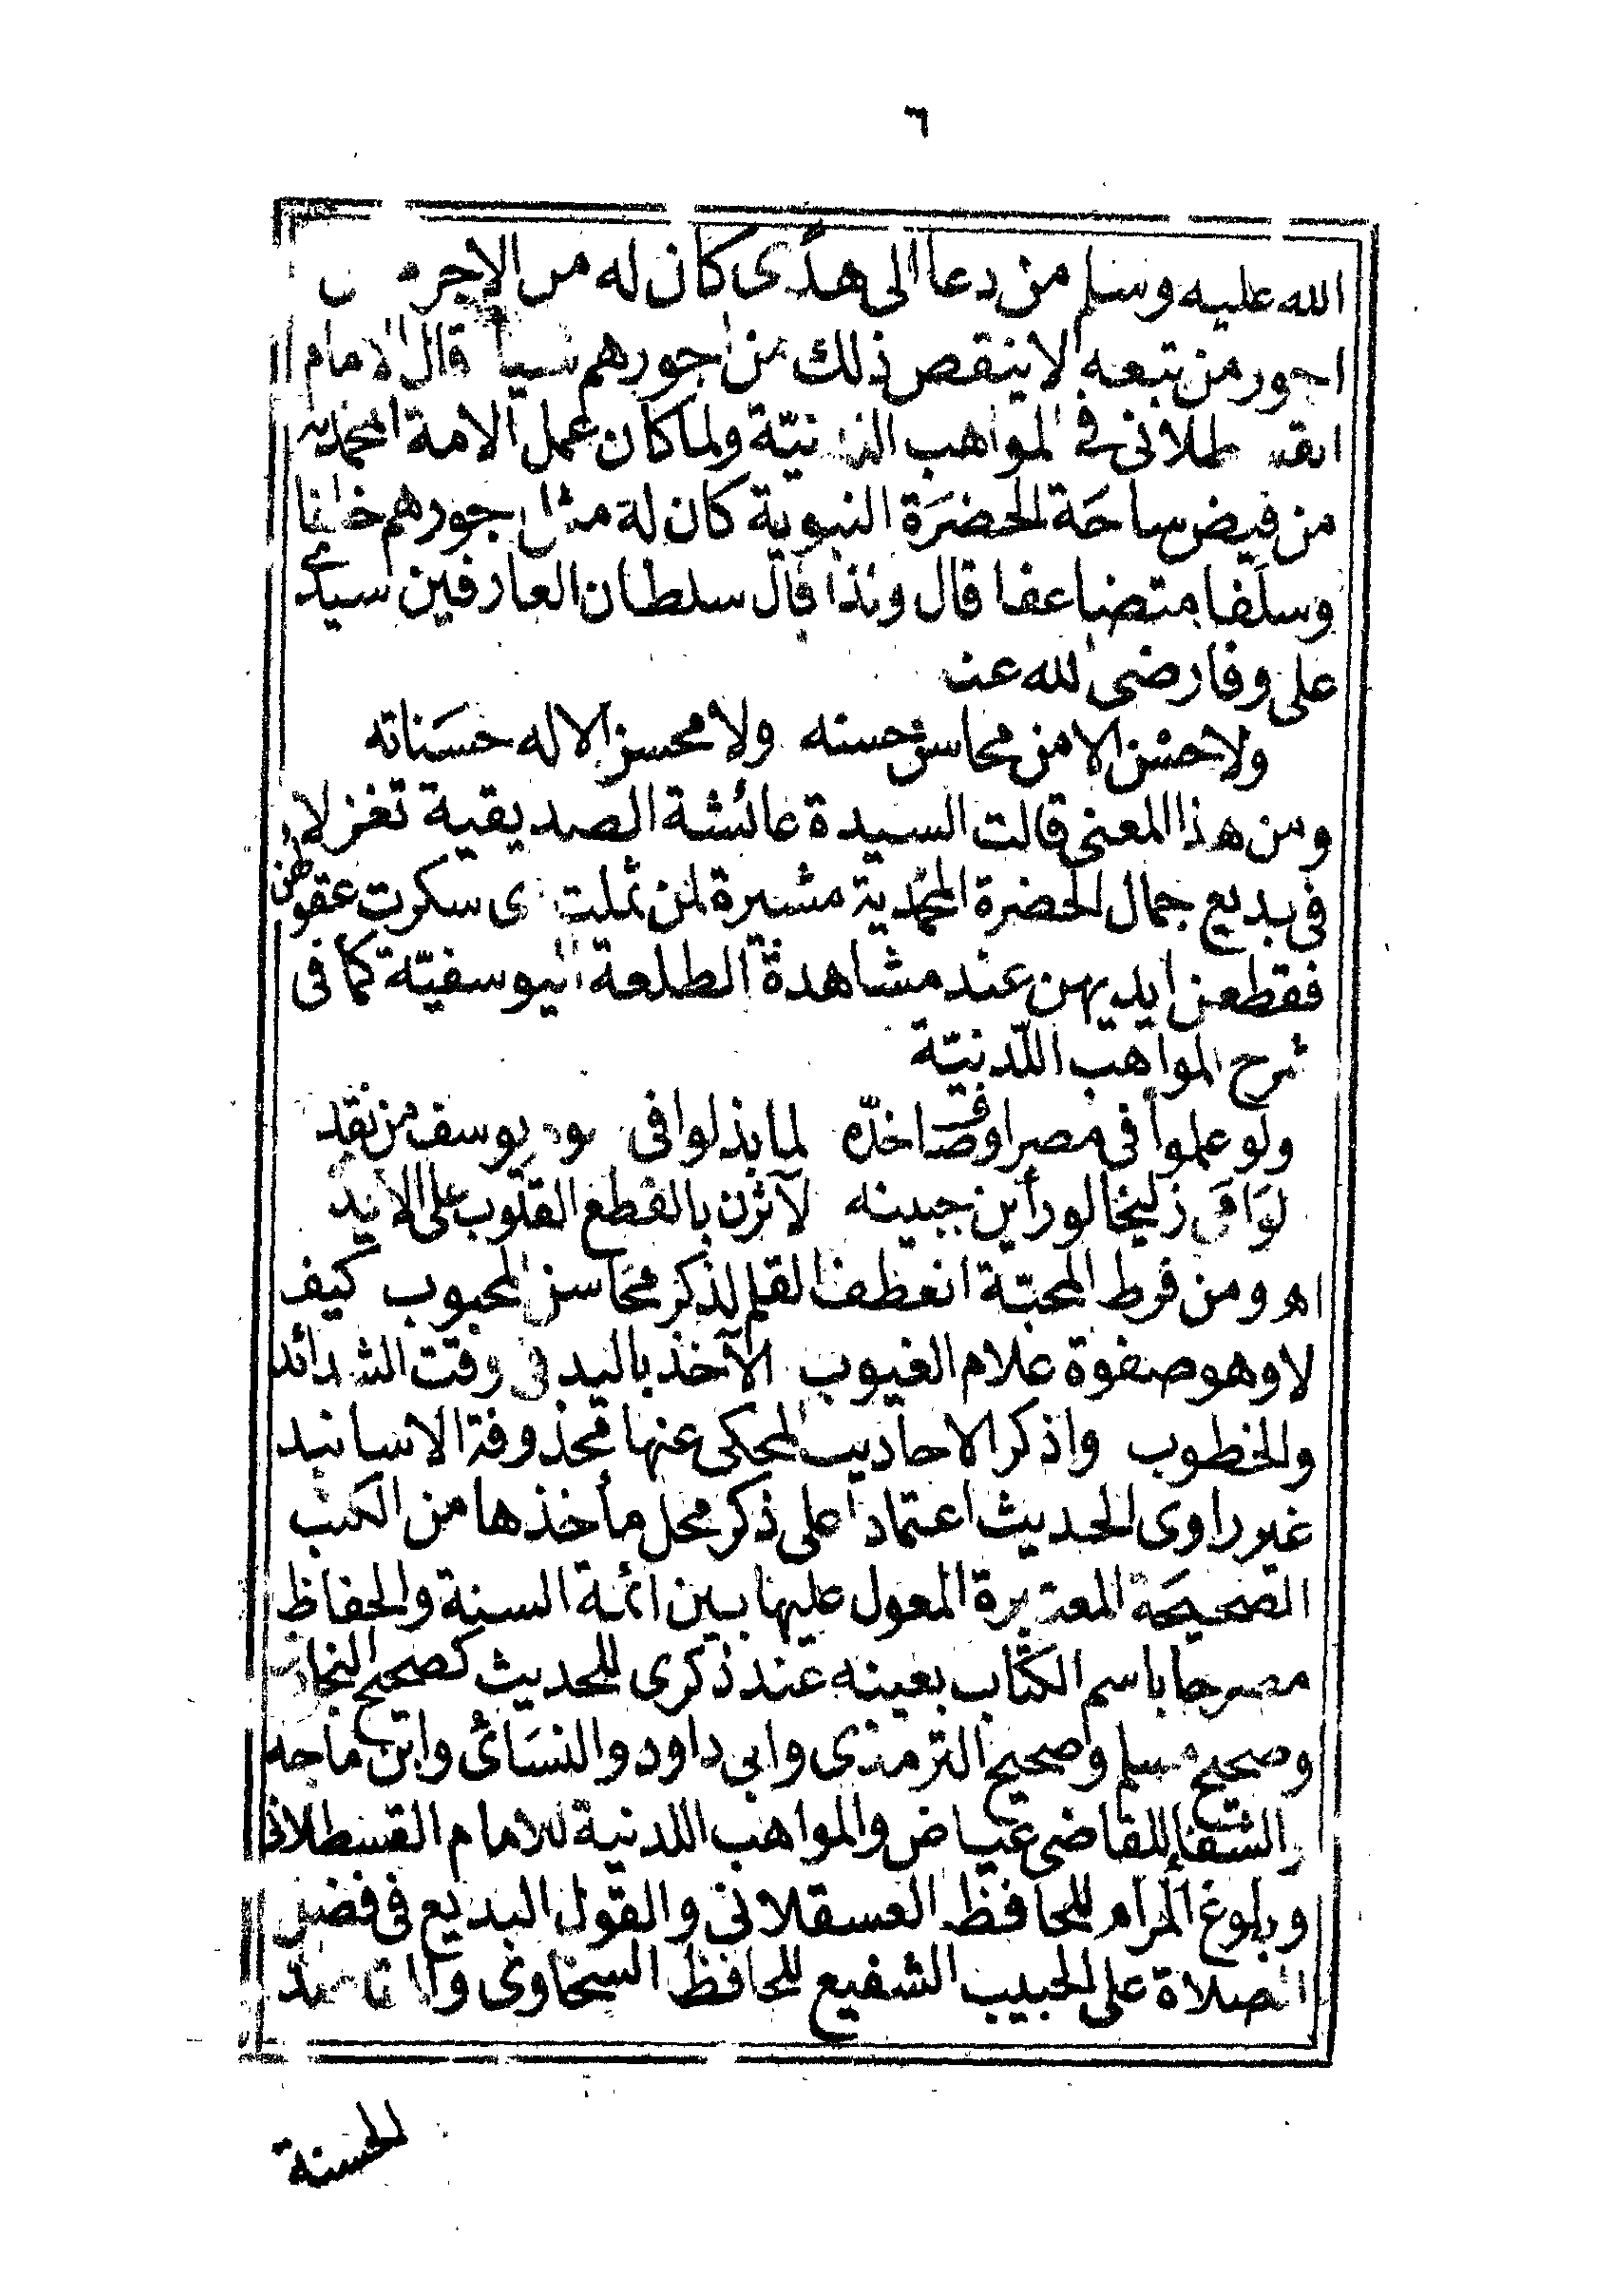 ٦
الله عليه وسلم من دعا الى هدًى كان له من الاجر
اجور من تبعه لا ينقص ذلك من اجورهم شيأ قال الامام
القسطلانى فى المواهب اللدنيّة ولما كان عمل الامة المحمديه
من فيض ساحَة الحضرَة النبوية كان له مثل اجورهم خلفا
وسلَفا متضاعفا قال ولذا قال سلطان العارفين سيدى
على وفا رضى الله عنه
ولا حسْن الا من محاسن حسنه ولا محسن الا له حسَناته
ومن هذا المعنى قالت السيدة عائشة الصديقية تغزلا
فى بديع جمال الحضرة المحمّدية مشيرة لمن ثملت اى سكرت عقولهن
فقطعن ايديهن عند مشاهدة الطلعة اليوسفيّة كما فى
شرح المواهب اللّدنيّة
ولو علموا فى مصر اوصاف خدّه لما بذلوا فى سوم يوسف من نقد
لوَامى زليخا لو رأين جبينه لآثرن بالقطع القلوب على الايدى
اه ومن فرط المحبّة انعطف القلم لذكر محَاسن المحبوب كيف
لا وهو صفوة علام الغيوب الآخذ باليد فى وقت الشدائد
والخطوب واذكر الاحاديث المحكى عنها محذوفة الاسانيد
غير راوى الحديث اعتمادا على ذكر محل مأخذها من الكتب
الصحيحَة المعتبرة المعول عليها بين ائمة السنة والحفاظ
مصرحا باسم الكتاب بعينه عند ذكرى للحديث كصحيح البخارى
وصحيح مسلم وصحيح الترمذى وابى داود والنسَائى وابن ماجه
والشفا للقاضى عياض والمواهب اللدنية للامام القسطلانى
وبلوغ المرام للحافظ العسقلانى والقول البديع فى فضل
الصلاة على الحبيب الشفيع للحافظ السخاوى والمقاصد
الحسنة